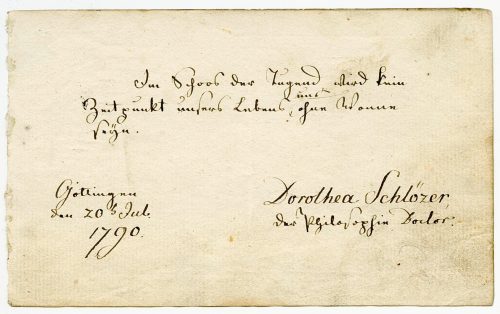 Im Schoos der Tugend wird kein
Zeitpunkt unsers Lebens uns ohne Wonne
seÿn.
Göttingen
den 20 Jul.
1790.
Dorothea Schlözer,
der Philosophie Doctor.